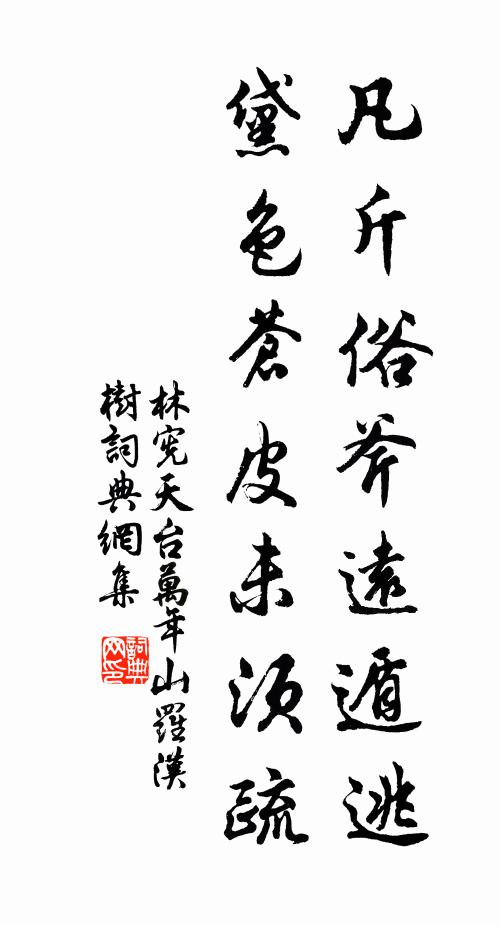 凡斤俗斧遠遁逃
黛色蒼皮未須疏
林宪天台萬年山羅漢
樹詞典網集
詞典
网印